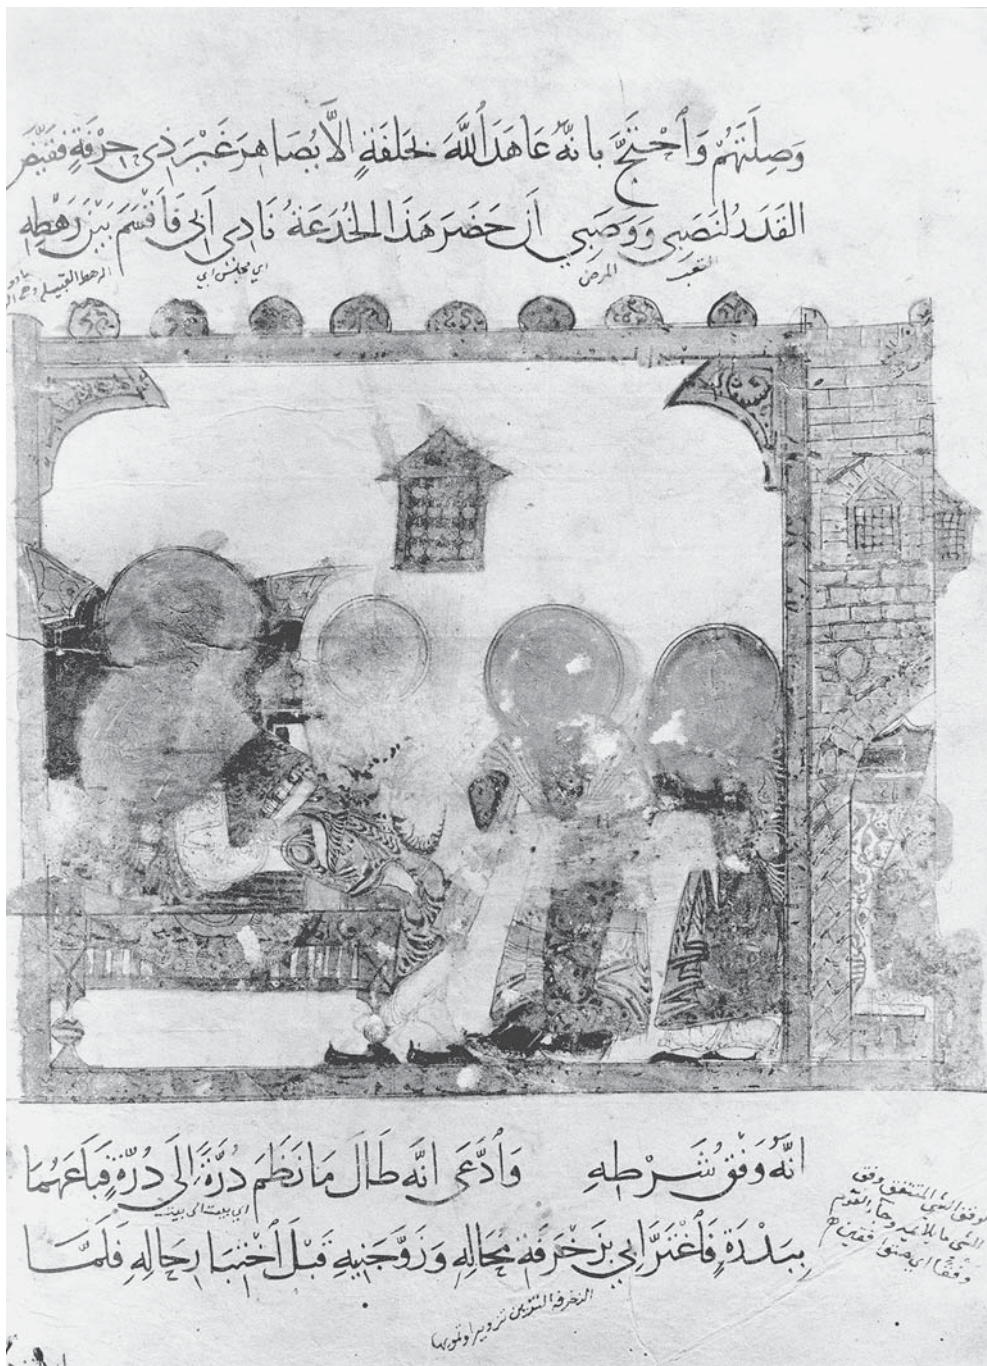 وَصِلَتَهُمْ وَاحْتَجَّ بِانَّهُ عَاهَدَ اللَّهَ بِحَلفَةٍ الَّا يُصَاهِرَ غَيْرَ ذِي حِرْفَةٍ فَقَيَّضَ
القَدَرُ لنَصَبِي وَوَصَبِي أَن حَضَرَ هَذَا الخُدَعَةُ نَادِى أَبِي فَاقْسَمَ بَيْنَ رَهْطِهِ
التعب
المرض
اي مجلس ابي
الرهط القبيلة
انَّهُ وَفْقُ شَرْطِهِ وَادَّعَى انَّه طَالَ مَا نَظَمَ دُرَّةً إِلَى دُرَّةٍ فَبَاعَهُمَا
اي بيت الى بيت
بِبَدْرَةٍ فَاغْتَرَّ ابِي بِزَخْرَفَةِ مُحَالِهِ وَزَوَّجَنِيهِ قَبْلَ اخْتِبَارِ حَالِهِ فَلَمَّا
الزخرفة التزين تزويرا وتمويها